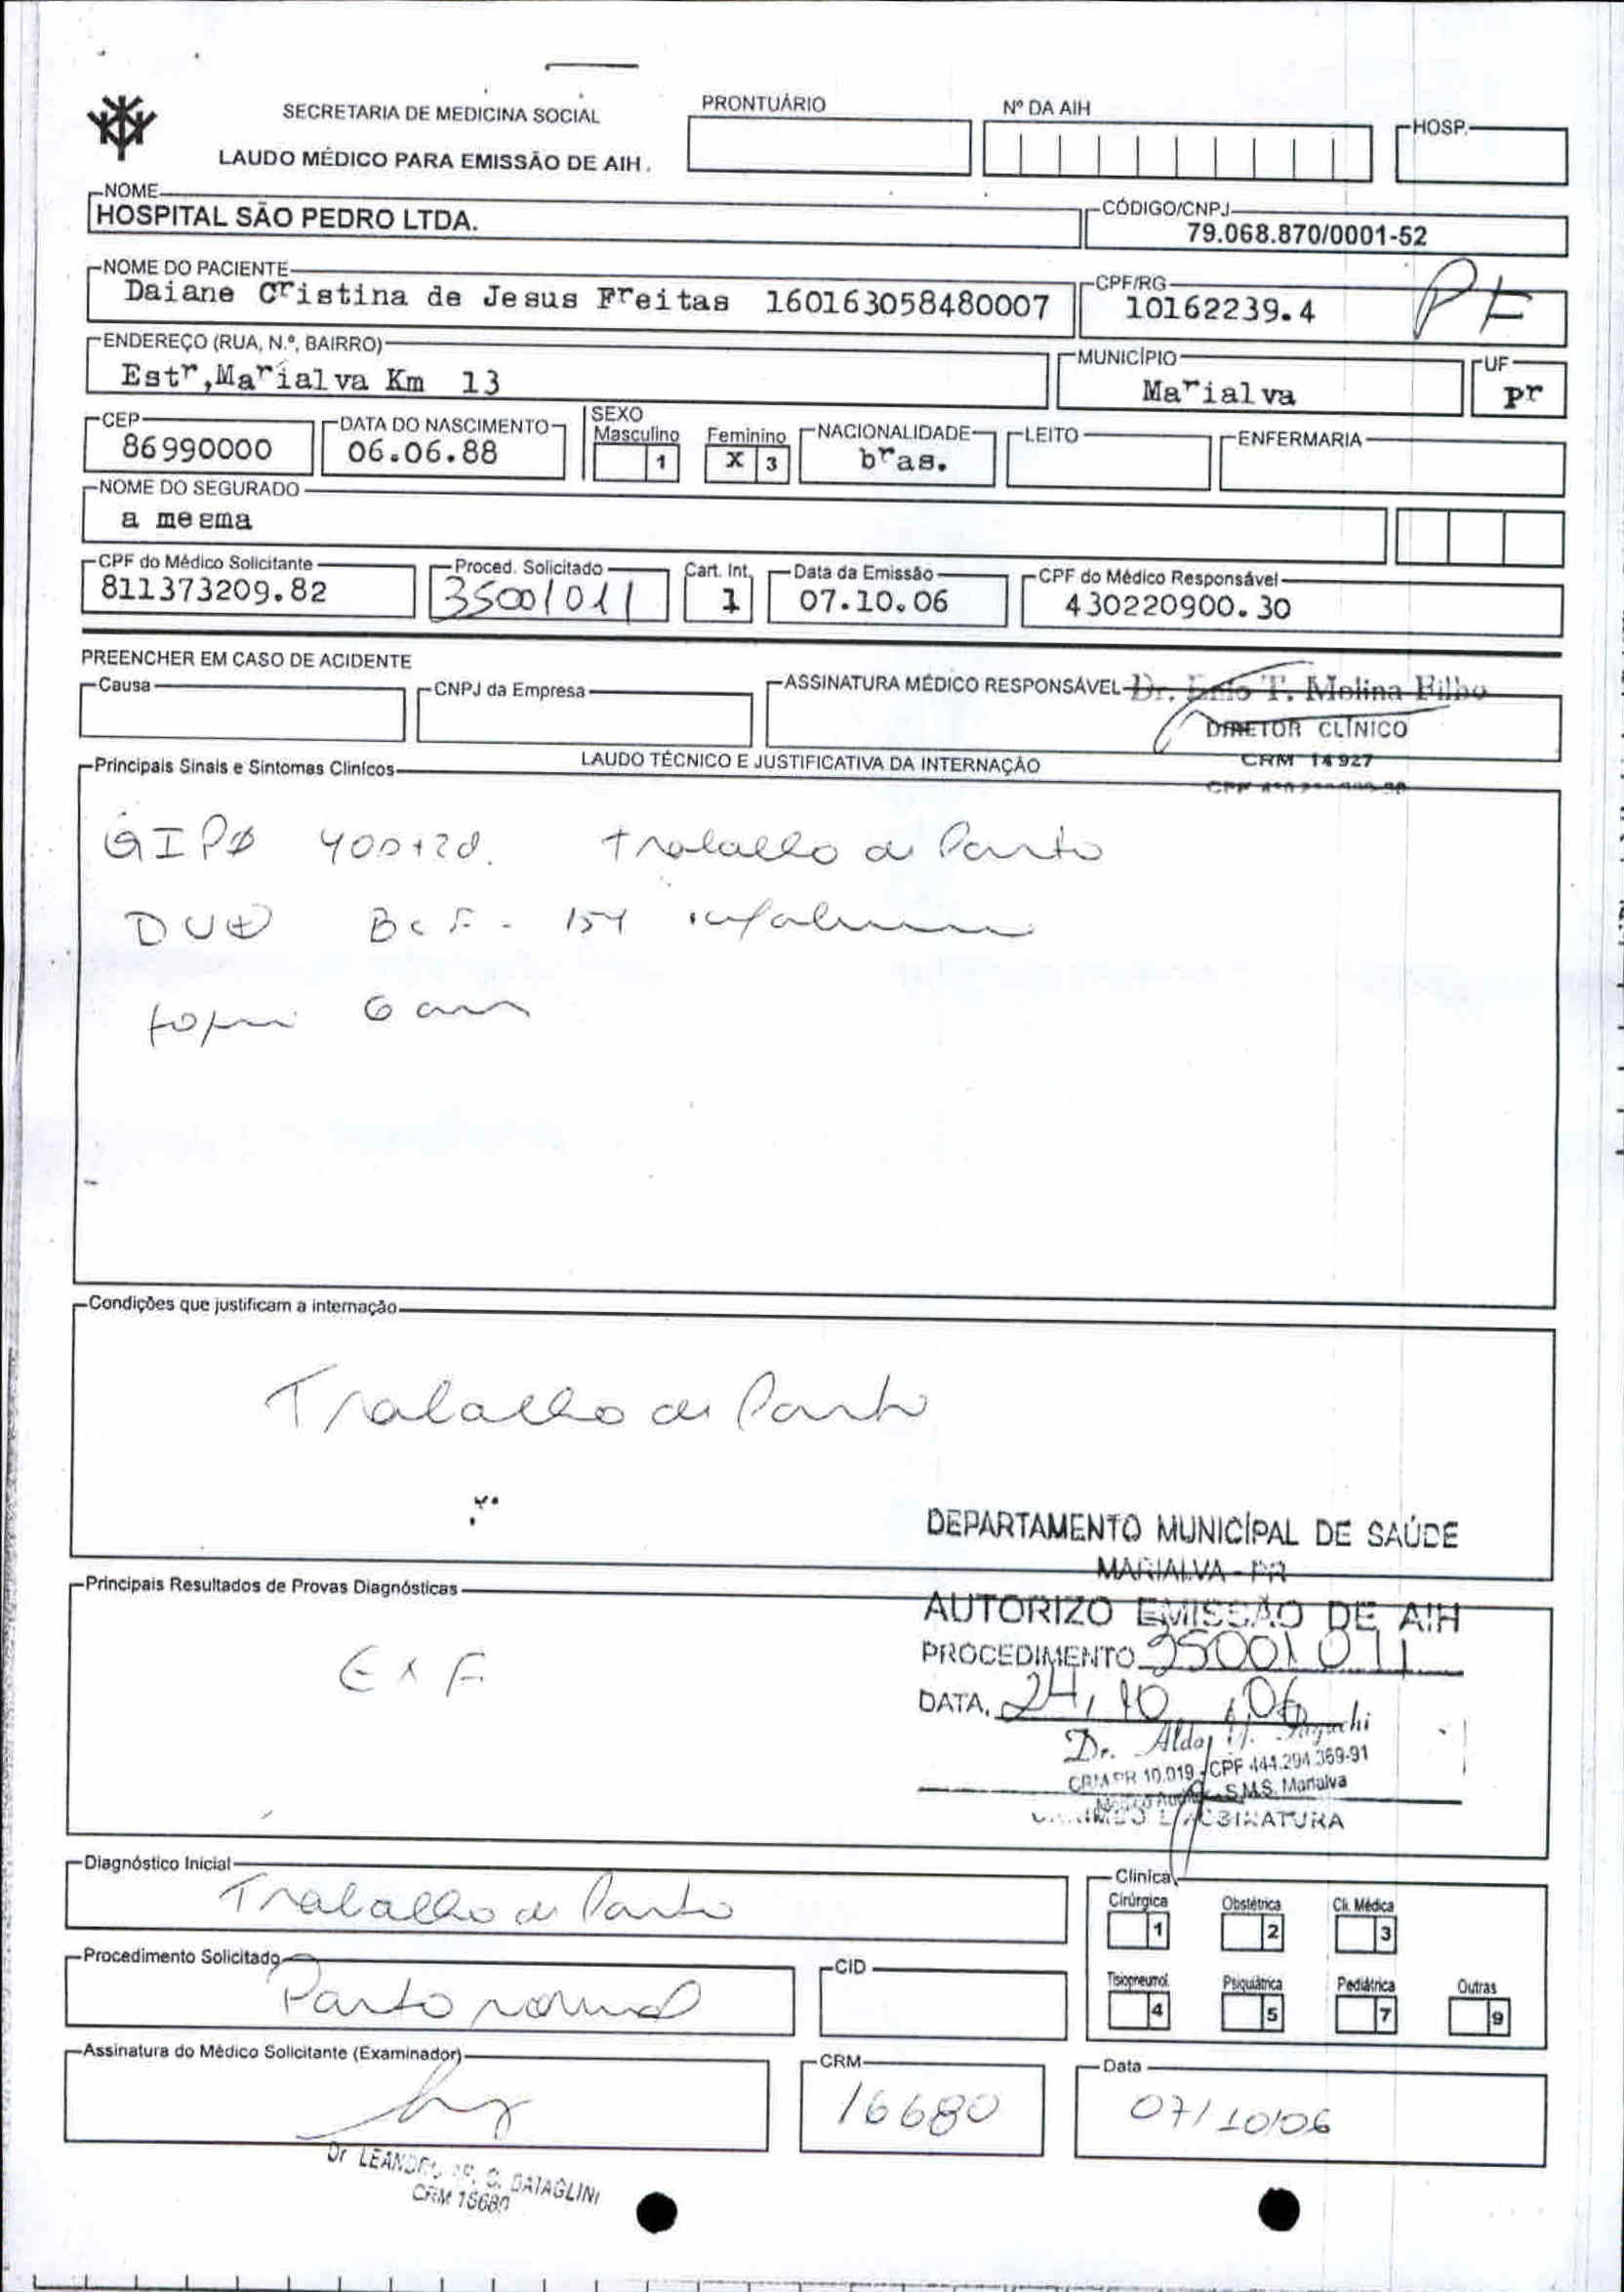 SECRETARIA DE MEDICINA SOCIAL
LAUDO MÉDICO PARA EMISSÃO DE AIH.
PRONTUÁRIO
Nº DA AIH
HOSP.
NOME
HOSPITAL SÃO PEDRO LTDA.
CÓDIGO/CNPJ
79.068.870/0001-52
NOME DO PACIENTE
Daiane Cristina de Jesus Freitas 160163058480007
CPF/RG
10162239.4
PF
ENDEREÇO (RUA, N.º, BAIRRO)
Estr,Marialva Km 13
MUNICÍPIO
Marialva
UF
pr
CEP
86990000
DATA DO NASCIMENTO
06.06.88
SEXO
Masculino 1
Feminino X 3
NACIONALIDADE
bras.
LEITO
ENFERMARIA
NOME DO SEGURADO
a mesma
CPF do Médico Solicitante
811373209.82
Proced. Solicitado
35001011
Cart. Int.
1
Data da Emissão
07.10.06
CPF do Médico Responsável
430220900.30
PREENCHER EM CASO DE ACIDENTE
Causa
CNPJ da Empresa
ASSINATURA MÉDICO RESPONSÁVEL
Dr. T. Molina Filho
DIRETOR CLÍNICO
CRM 14927
LAUDO TÉCNICO E JUSTIFICATIVA DA INTERNAÇÃO
Principais Sinais e Sintomas Clínicos
GIPØ Trabalho de Parto
BCF - 154
6 cm
Condições que justificam a internação
Trabalho de Parto
DEPARTAMENTO MUNICÍPAL DE SAÚDE
MARIALVA - PR
Principais Resultados de Provas Diagnósticas
AUTORIZO EMISSÃO DE AIH
PROCEDIMENTO 35001011
DATA, 24, 10, 06
Dr. Aldo
CRM PR 10.019 CPF 441.294.369-91
S.M.S. Marialva
ASSINATURA
ExF
Diagnóstico Inicial
Trabalho de Parto
Clínica
Cirúrgica 1
Obstétrica 2
Cli. Médica 3
Tisiopneumol. 4
Psiquiátrica 5
Pediátrica 7
Outras 9
Procedimento Solicitado
Parto normal
CID
Assinatura do Médico Solicitante (Examinador)
CRM
16680
Data
07/10/06
Dr LEANDRO AP. C. BATAGLINI
CRM 16680